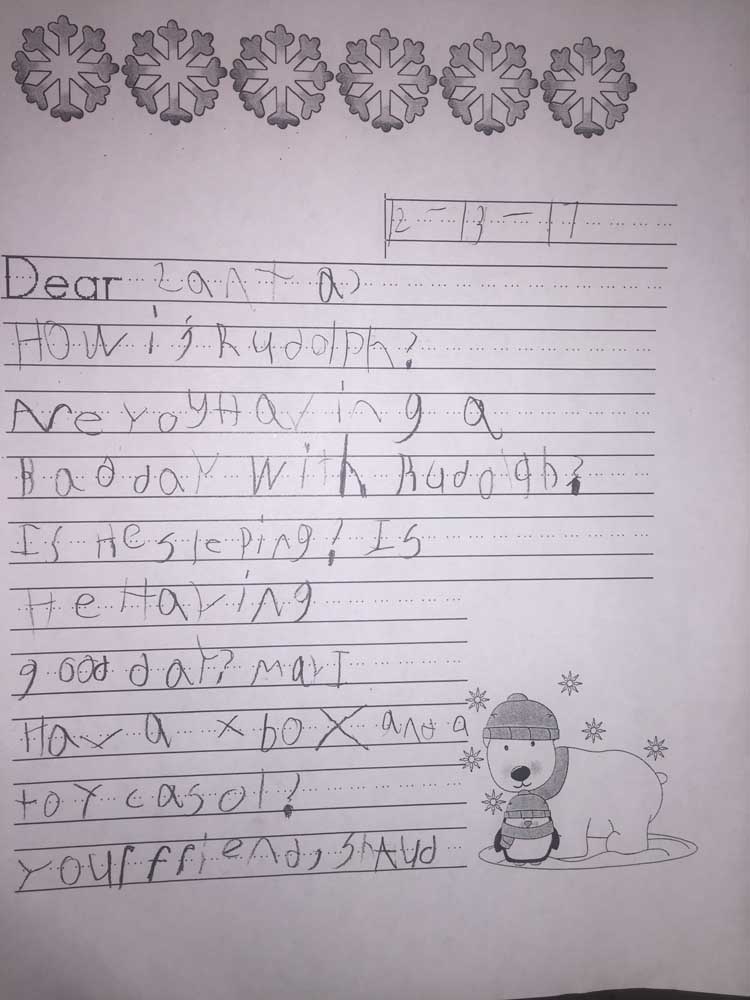 12-13-17
Dear Santa,
HOW is Rudolph?
Are yoy Having a
Bad day with Rudolgh?
Is He sleping? Is
He Having
good day? may I
Hav a xboX and a
toy casol?
your friend,